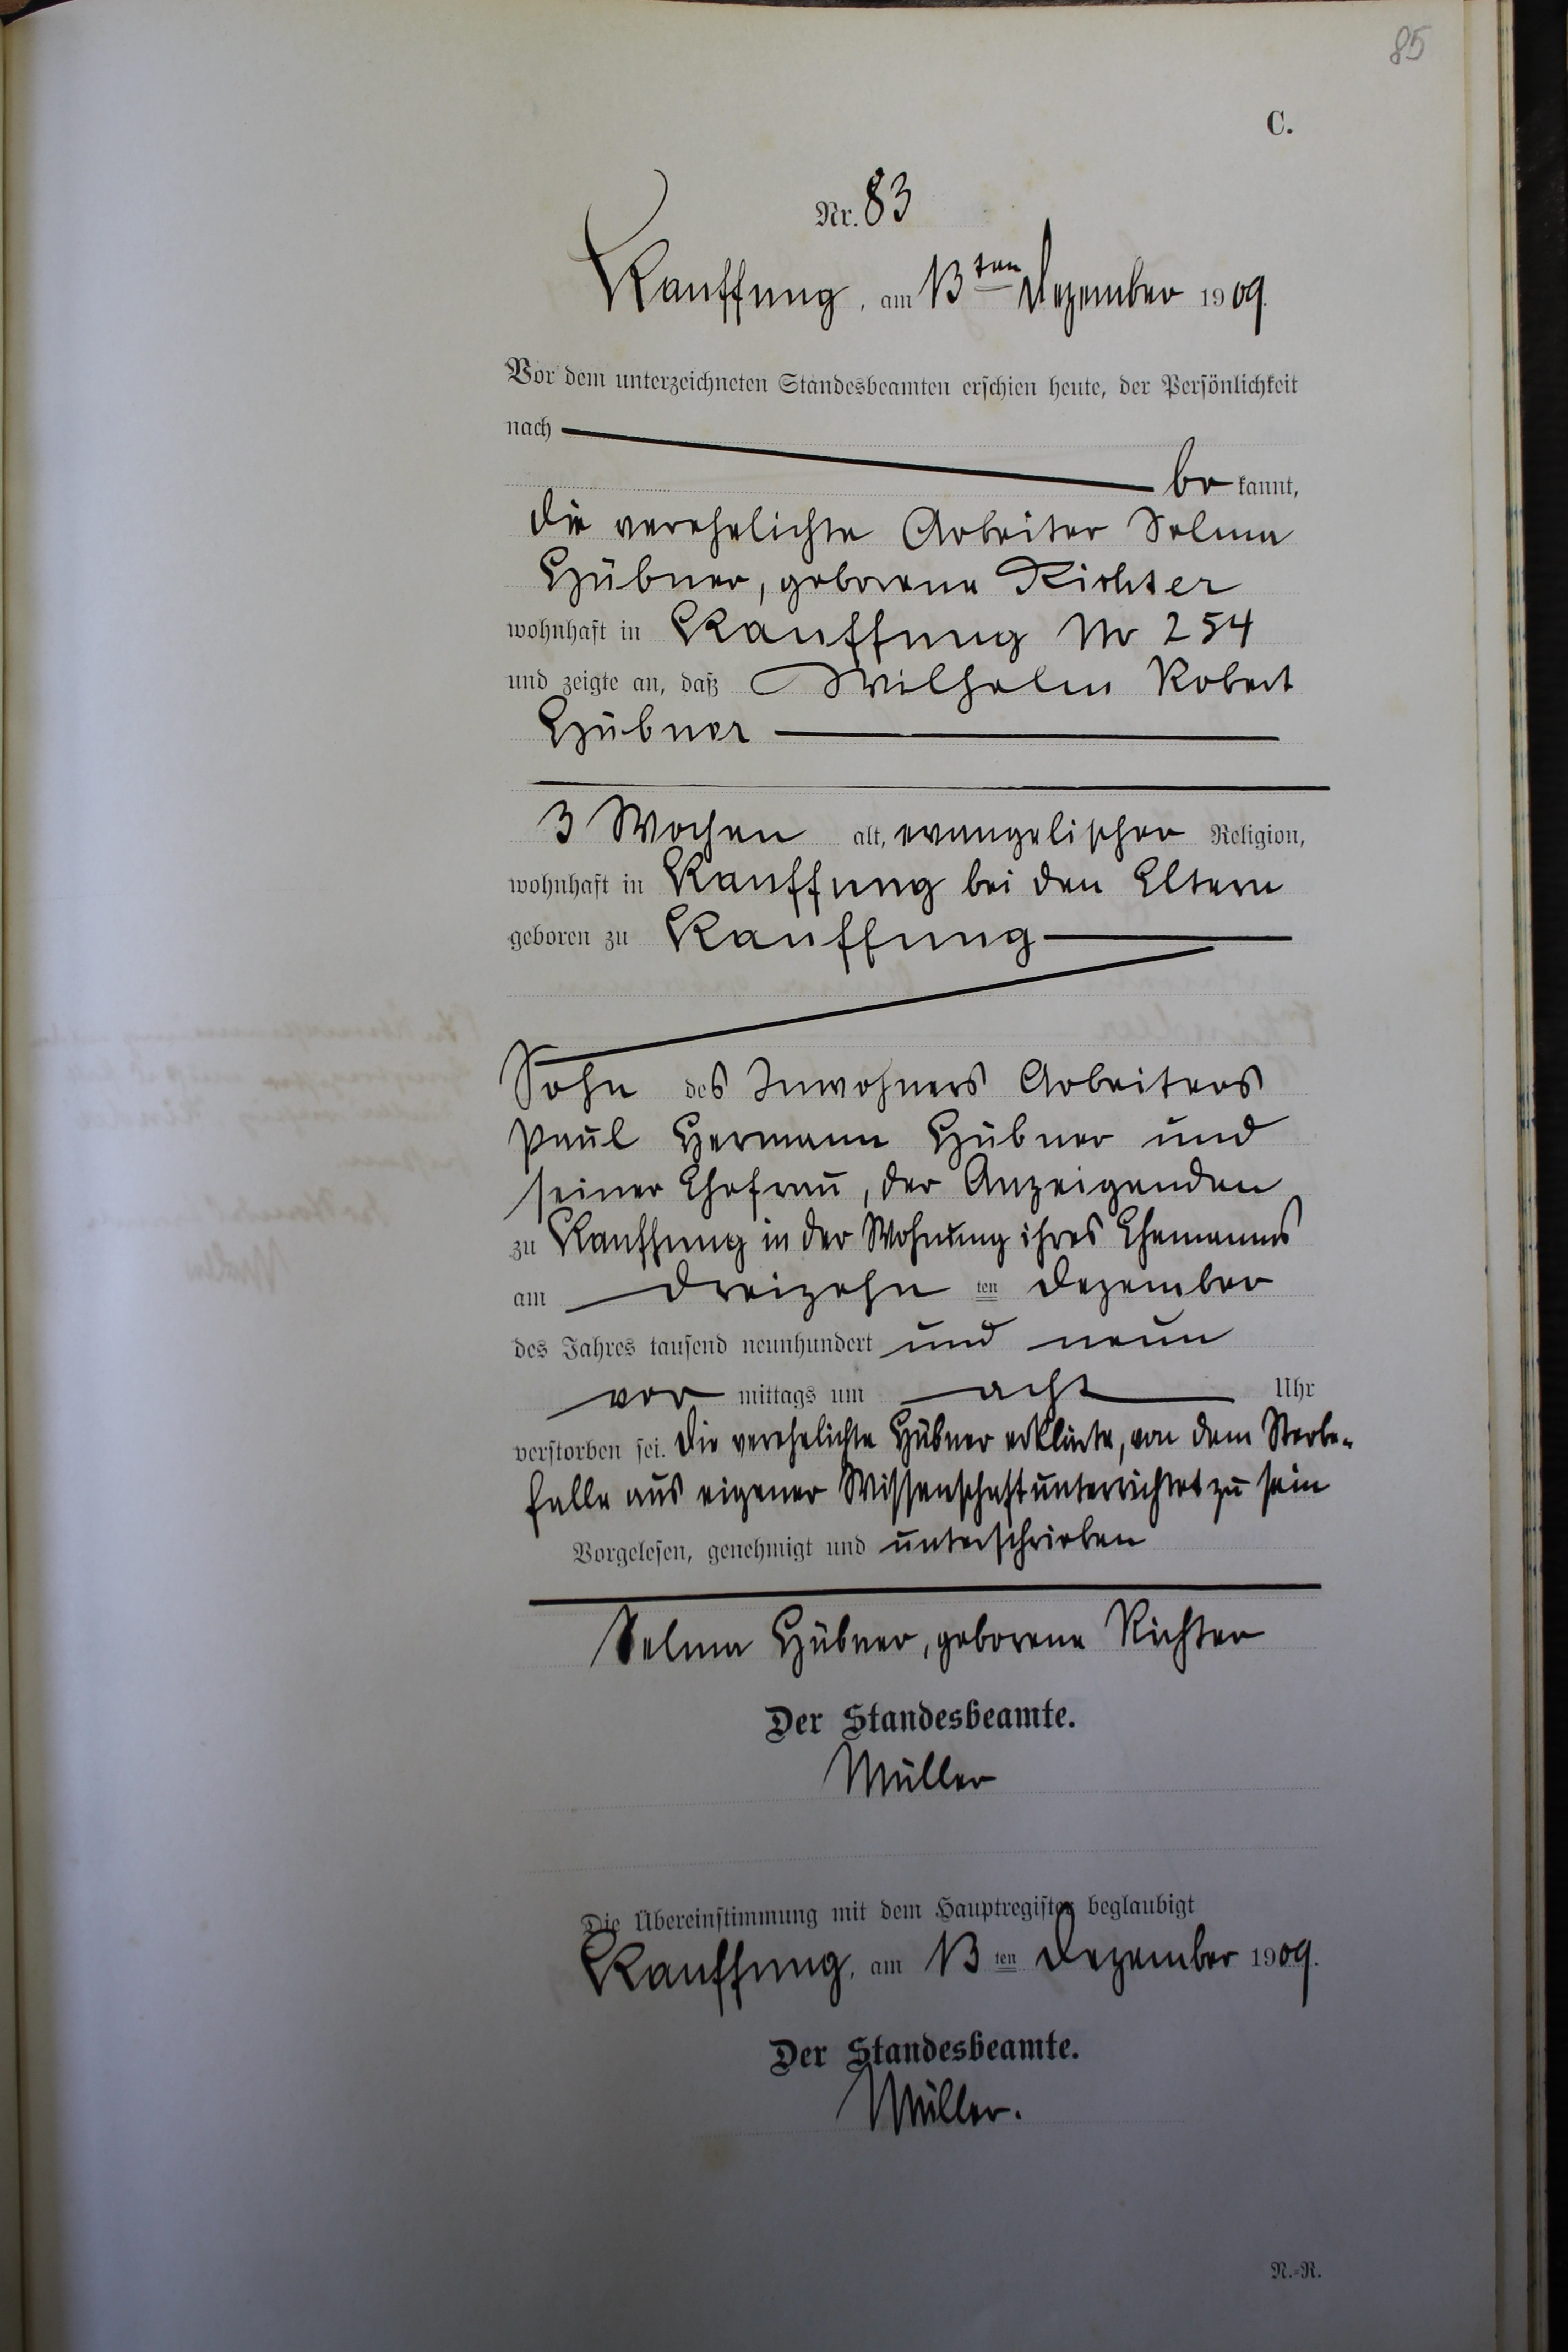 85
C.
Nr. 83
Kauffung, am 13ten Dezember 1909.
Vor dem unterzeichneten Standesbeamten erschien heute, der Persönlichkeit
nach
bekannt,
die verehelichte Arbeiter Selma
Hübner, geborene Richter
wohnhaft in Kauffung Nr 254
und zeigte an, daß Wilhelm Robert
Hübner
3 Wochen alt, evangelischer Religion,
wohnhaft in Kauffung bei den Eltern
geboren zu Kauffung
Sohn des Inwohners Arbeiters
Paul Hermann Hübner und
seiner Ehefrau, der Anzeigenden
zu Kauffung in der Wohnung ihres Ehemanns
am dreizehnten Dezember
des Jahres tausend neunhundert und neun
vormittags um acht Uhr
verstorben sei. Die verehelichte Hübner erklärte, von dem Sterbe-
falle aus eigener Wissenschaft unterrichtet zu sein
Vorgelesen, genehmigt und unterschrieben
Selma Hübner, geborene Richter
Der Standesbeamte.
Müller
Die Übereinstimmung mit dem Hauptregister beglaubigt
Kauffung, am 13ten Dezember 1909.
Der Standesbeamte.
Müller.
N.-R.